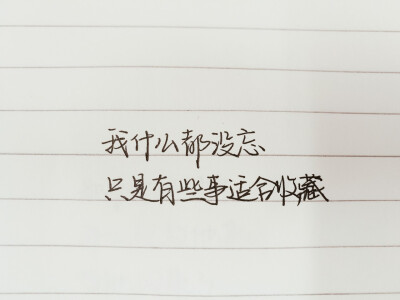 我什么都没忘
只是有些事适合收藏